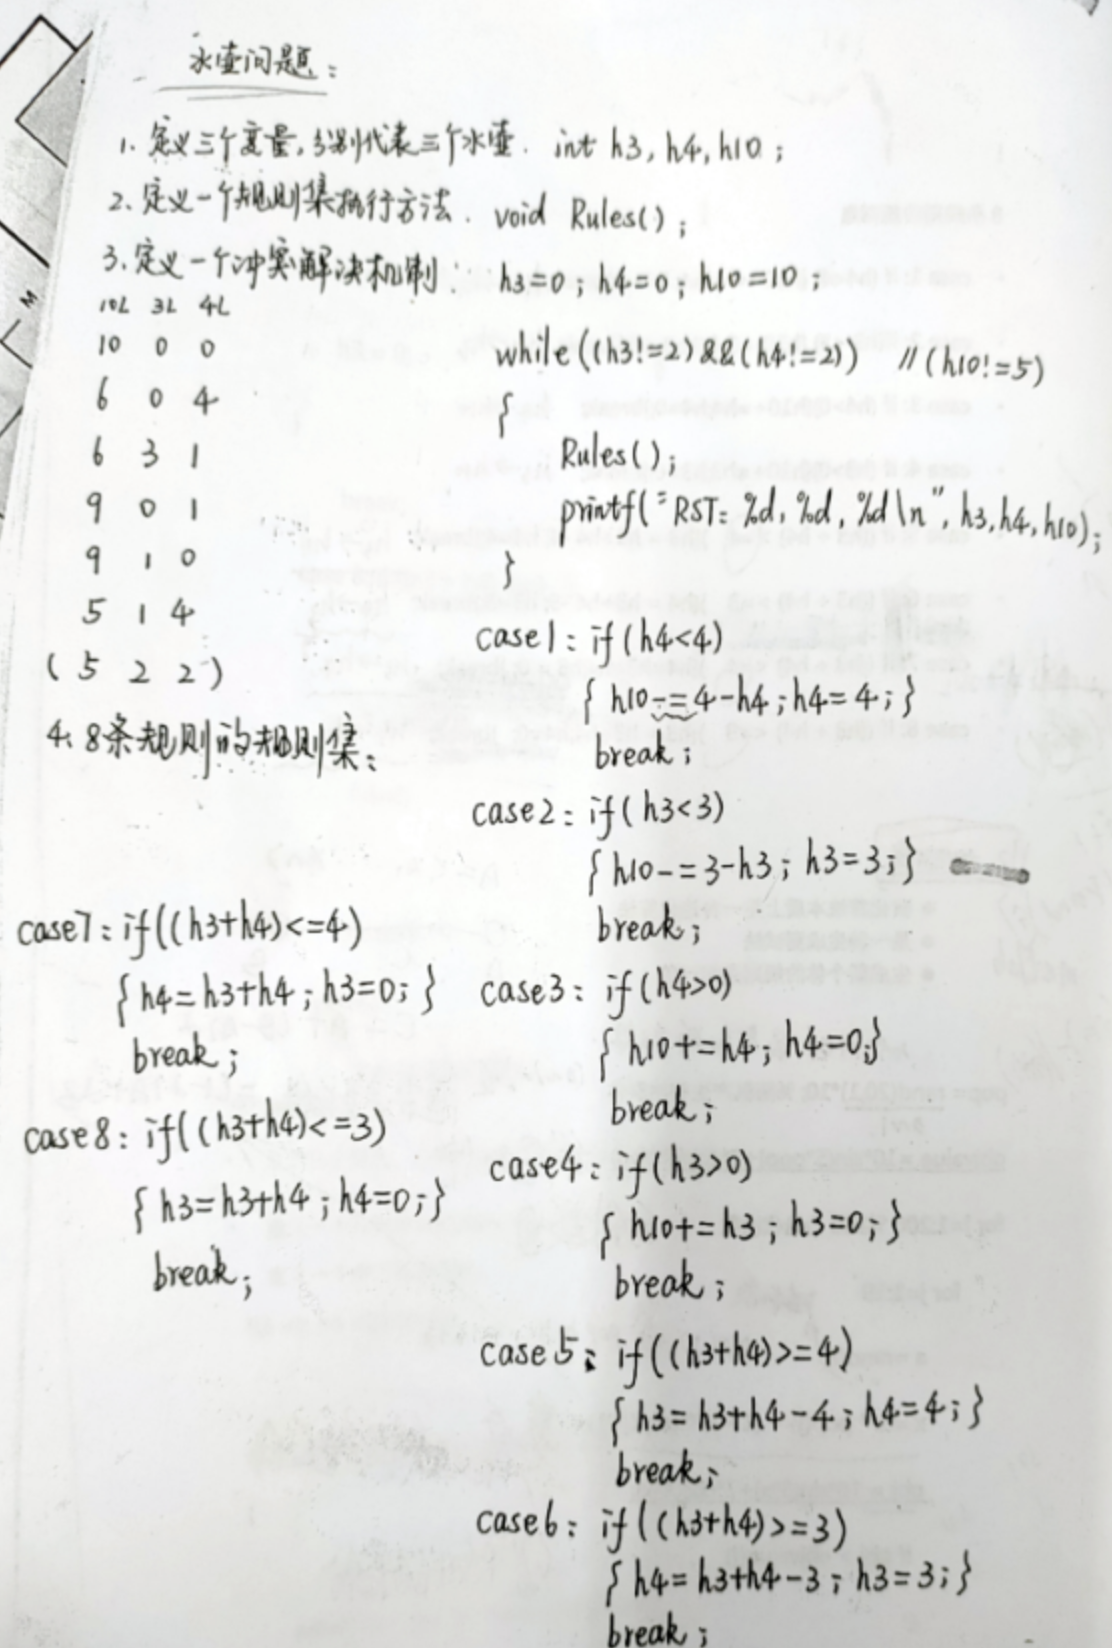 水壶问题：
1. 定义三个变量，分别代表三个水壶. int h3, h4, h10 ;
2. 定义一个规则集执行方法. void Rules() ;
3. 定义一个冲突解决机制： h3=0 ; h4=0 ; h10=10 ;
10L 3L 4L
10 0 0
6 0 4
6 3 1
9 0 1
9 1 0
5 1 4
( 5 2 2 )
while((h3!=2)&&(h4!=2)) //(h10!=5)
{
Rules();
printf("RST: %d, %d, %d\n", h3,h4,h10);
}
4. 8条规则的规则集：
case1: if(h4<4)
{ h10-=4-h4 ; h4=4 ; }
break ;
case2: if(h3<3)
{ h10-=3-h3 ; h3=3 ; }
break ;
case3: if(h4>0)
{ h10+=h4 ; h4=0;}
break ;
case4: if(h3>0)
{ h10+=h3 ; h3=0 ; }
break ;
case5: if((h3+h4)>=4)
{ h3=h3+h4-4 ; h4=4 ; }
break ;
case6: if((h3+h4)>=3)
{ h4=h3+h4-3 ; h3=3 ; }
break ;
case7: if((h3+h4)<=4)
{ h4=h3+h4 ; h3=0 ; }
break ;
case8: if((h3+h4)<=3)
{ h3=h3+h4 ; h4=0 ; }
break ;
M